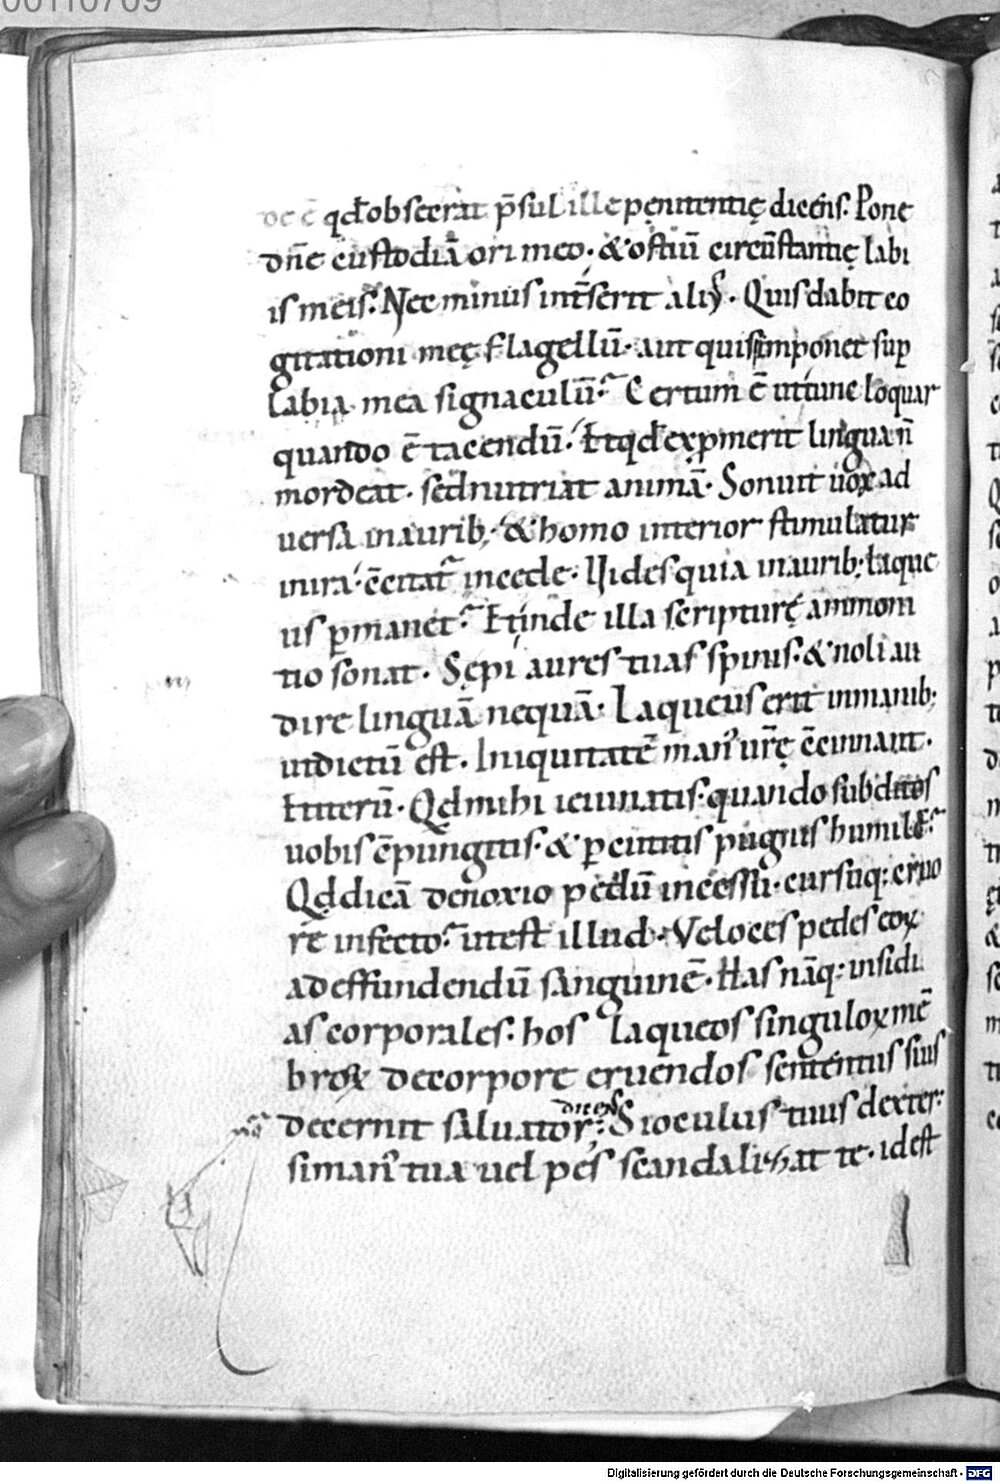 00110709
oc ē qđ obsecrat p̄sul ille penitentię dicens. Pone
dñe custodiā ori meo. & ostiū circūstantię labi
is meis. Nec minus inserit aliꝰ. Quis dabit co
gitationi meę flagellū. aut quis imponet sup
labia mea signaculū. Certum ē ut tunc loquar
quando ē tacendū. Et qđ exp̄merit lingua ñ
mordeat. sed nutriat animā. Sonuit uox ad
uersa in aurib; & homo interior stimulatur
in ira. Vides quia in aurib; laque
us p̄manet. Et inde illa scripturę ammoni
tio sonat. Sepi aures tuas spinis. & noli au
dire linguā nequā. Laqueus erit in manib;
ut dictū est. Iniquitatē man' urę ēcinnant.
Et iterū. Qđ mihi ieiunatis. quando subditos
uobis ēpungitis. & p̄cutitis pugnis humiles.
Qđ dicā de noxio pedū incessu. cursuq; cruo
re infecto. ut est illud. Veloces pedes eoꝝ
ad effundendū sanguinē. Has nāq; insidi
as corporales. hos laqueos singuloꝝ mē
broꝝ de corpore eruendos sententiis suis
decernit saluator. dicens Si oculus tuus dexter.
si man' tua uel pes scandalizat te. id est
Digitalisierung gefördert durch die Deutsche Forschungsgemeinschaft - DFG